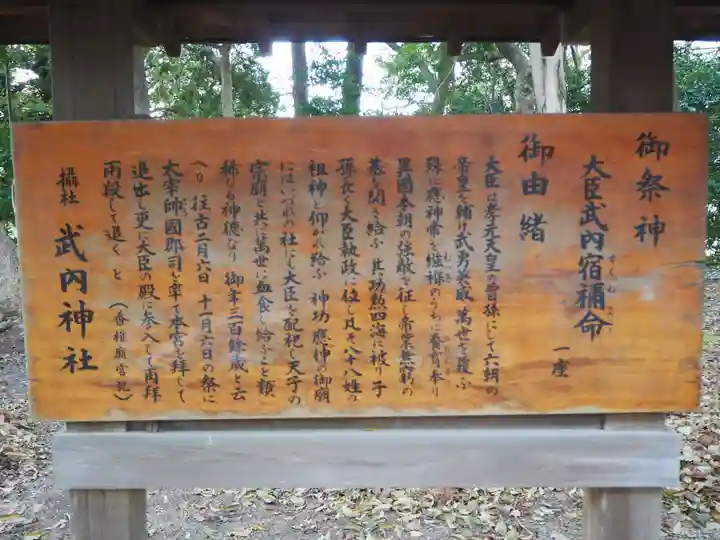 御祭神
大臣武内宿禰命
すくね
一座
御由緒
大臣は孝元天皇の曾孫にして六朝の
帝皇を輔け武勇英威萬世を覆ふ
殊に應神帝を襁褓のうちに養育し奉り
異國来朝の強敵を征し帝業無窮の
基を開き給ふ 其功勲四海に被り子
孫長く大臣執政に位し凡そ八十八姓の
祖神と仰がれ給ふ 神功應神の御廟
にはいづれの社にも大臣を配祀し天子の
宗廟と共に萬世に血食し給ふこと類
稀なる神徳なり 御年三百餘歳と云
へり 往古二月六日 十一月六日の祭に
太宰帥國郡司を率て本宮を拜して
退出し更に大臣の殿に参入して両拜
両段して退くと
(香椎廟宮記)
攝社 武内神社